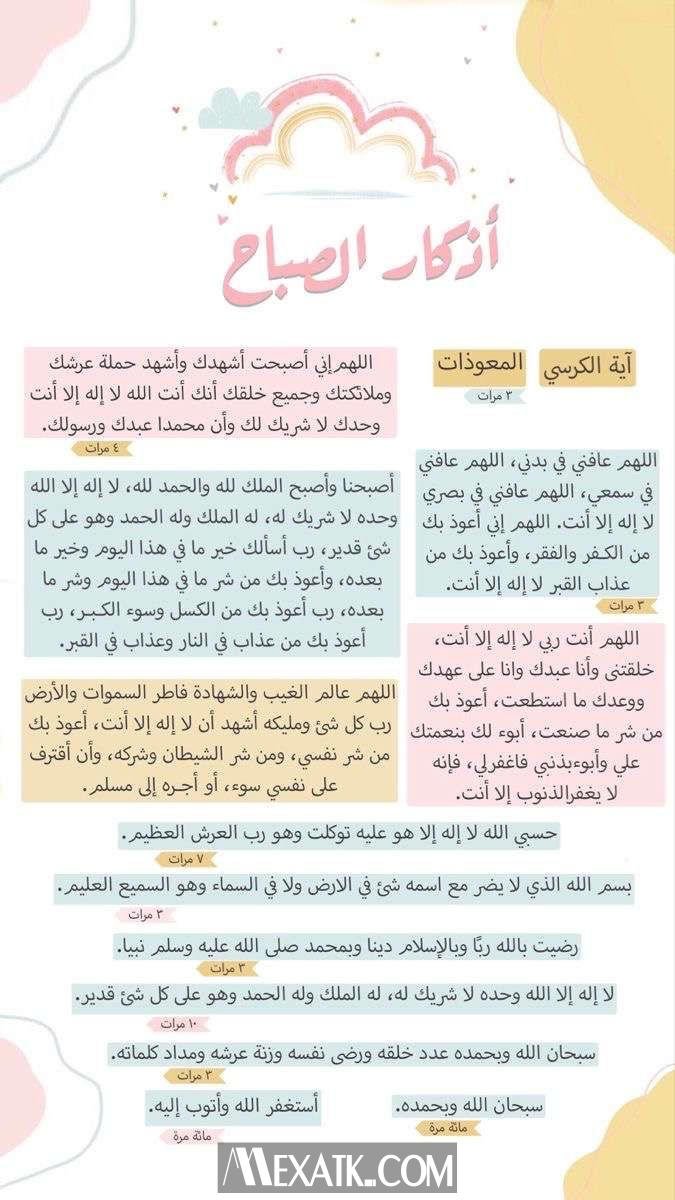 أذكار الصباح
آية الكرسي
المعوذات
٣ مرات
اللهم إني أصبحت أشهدك وأشهد حملة عرشك
وملائكتك وجميع خلقك أنك أنت الله لا إله إلا أنت
وحدك لا شريك لك وأن محمدا عبدك ورسولك.
٤ مرات
اللهم عافني في بدني، اللهم عافني
في سمعي، اللهم عافني في بصري
لا إله إلا أنت. اللهم إني أعوذ بك
من الكفر والفقر، وأعوذ بك من
عذاب القبر لا إله إلا أنت.
٣ مرات
أصبحنا وأصبح الملك لله والحمد لله، لا إله إلا الله
وحده لا شريك له، له الملك وله الحمد وهو على كل
شئ قدير، رب أسألك خير ما في هذا اليوم وخير ما
بعده، وأعوذ بك من شر ما في هذا اليوم وشر ما
بعده، رب أعوذ بك من الكسل وسوء الكبر، رب
أعوذ بك من عذاب في النار وعذاب في القبر.
اللهم أنت ربي لا إله إلا أنت،
خلقتنى وأنا عبدك وانا على عهدك
ووعدك ما استطعت، أعوذ بك
من شر ما صنعت، أبوء لك بنعمتك
علي وأبوءبذنبي فاغفرلي، فإنه
لا يغفرالذنوب إلا أنت.
اللهم عالم الغيب والشهادة فاطر السموات والأرض
رب كل شئ ومليكه أشهد أن لا إله إلا أنت، أعوذ بك
من شر نفسي، ومن شر الشيطان وشركه، وأن أقترف
على نفسي سوء، أو أجره إلى مسلم.
حسبي الله لا إله إلا هو عليه توكلت وهو رب العرش العظيم.
٧ مرات
بسم الله الذي لا يضر مع اسمه شئ في الارض ولا في السماء وهو السميع العليم.
٣ مرات
رضيت بالله ربًا وبالإسلام دينا وبمحمد صلى الله عليه وسلم نبيا.
٣ مرات
لا إله إلا الله وحده لا شريك له، له الملك وله الحمد وهو على كل شئ قدير.
١٠ مرات
سبحان الله وبحمده عدد خلقه ورضى نفسه وزنة عرشه ومداد كلماته.
٣ مرات
سبحان الله وبحمده.
مائة مرة
أستغفر الله وأتوب إليه.
مائة مرة
MEXATK.COM